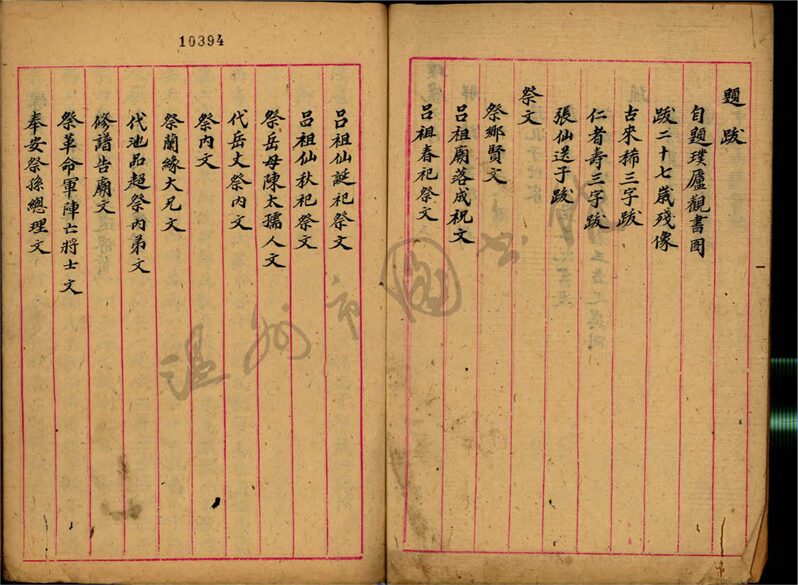 題跋
自題璞廬觀書圖
跋二十七歲殘像
古來稀三字跋
仁者壽三字跋
張仙送子跋
祭文
祭鄉賢文
呂祖廟落成祝文
呂祖春祀祭文
10394
呂祖仙誕祀祭文
呂祖仙秋祀祭文
祭岳母陳太孺人文
代岳丈祭內文
祭內文
祭蘭緣大兄文
代池品超祭內弟文
修譜告廟文
祭革命軍陣亡將士文
奉安祭孫總理文
温州市圖書館